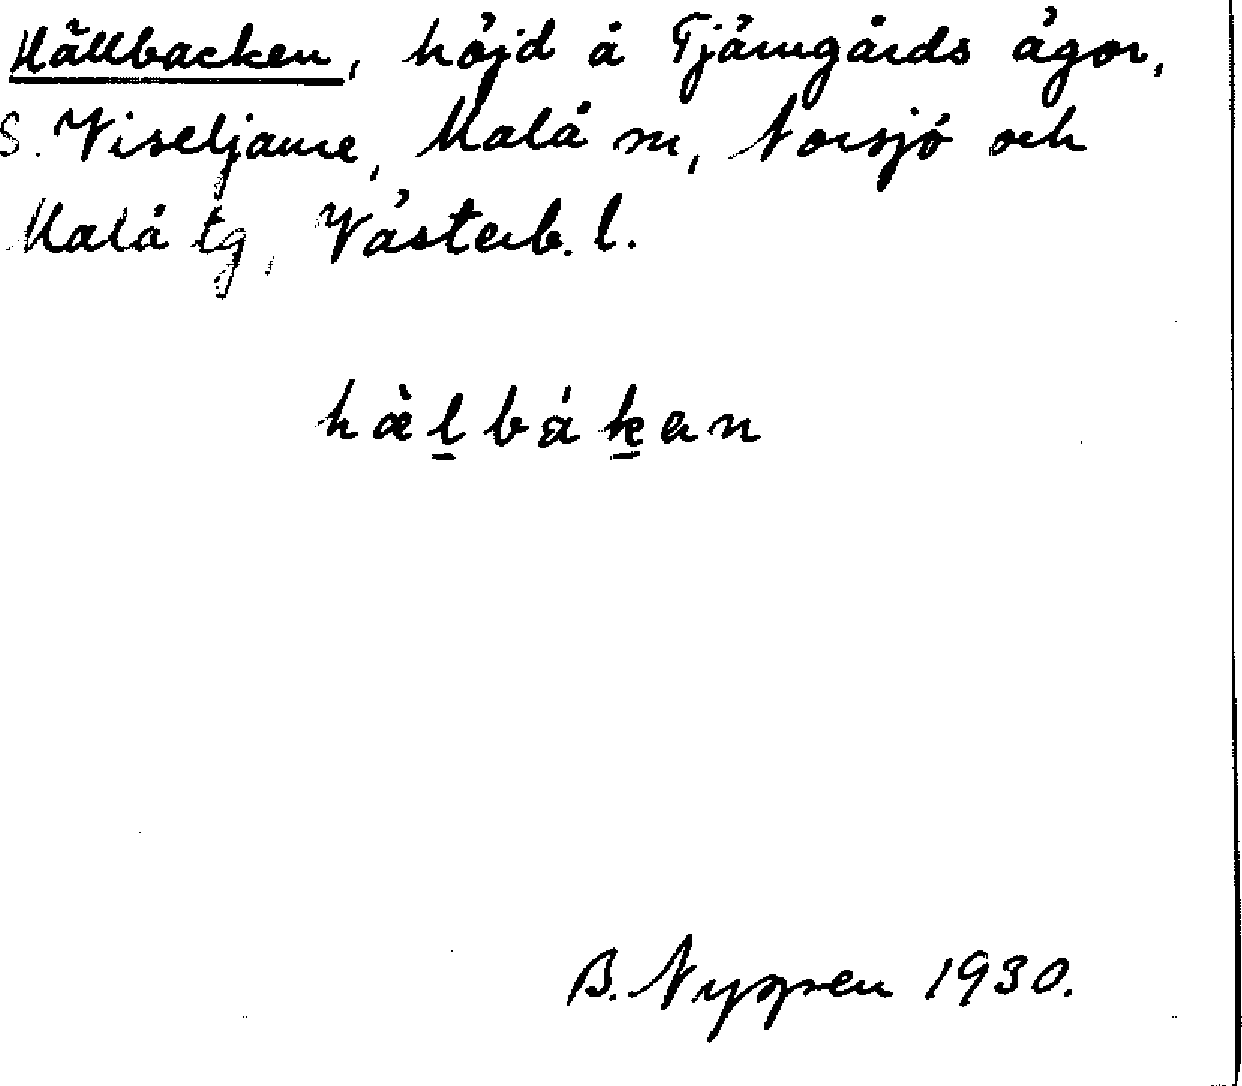 Hällbacken, höjd å Tjärngårds ägor,
S. Viseljaure, Malå sn, Norsjö och
Malå tg, Västerb. l.
hὰl̠bάk̠en
B. Nygren 1930.